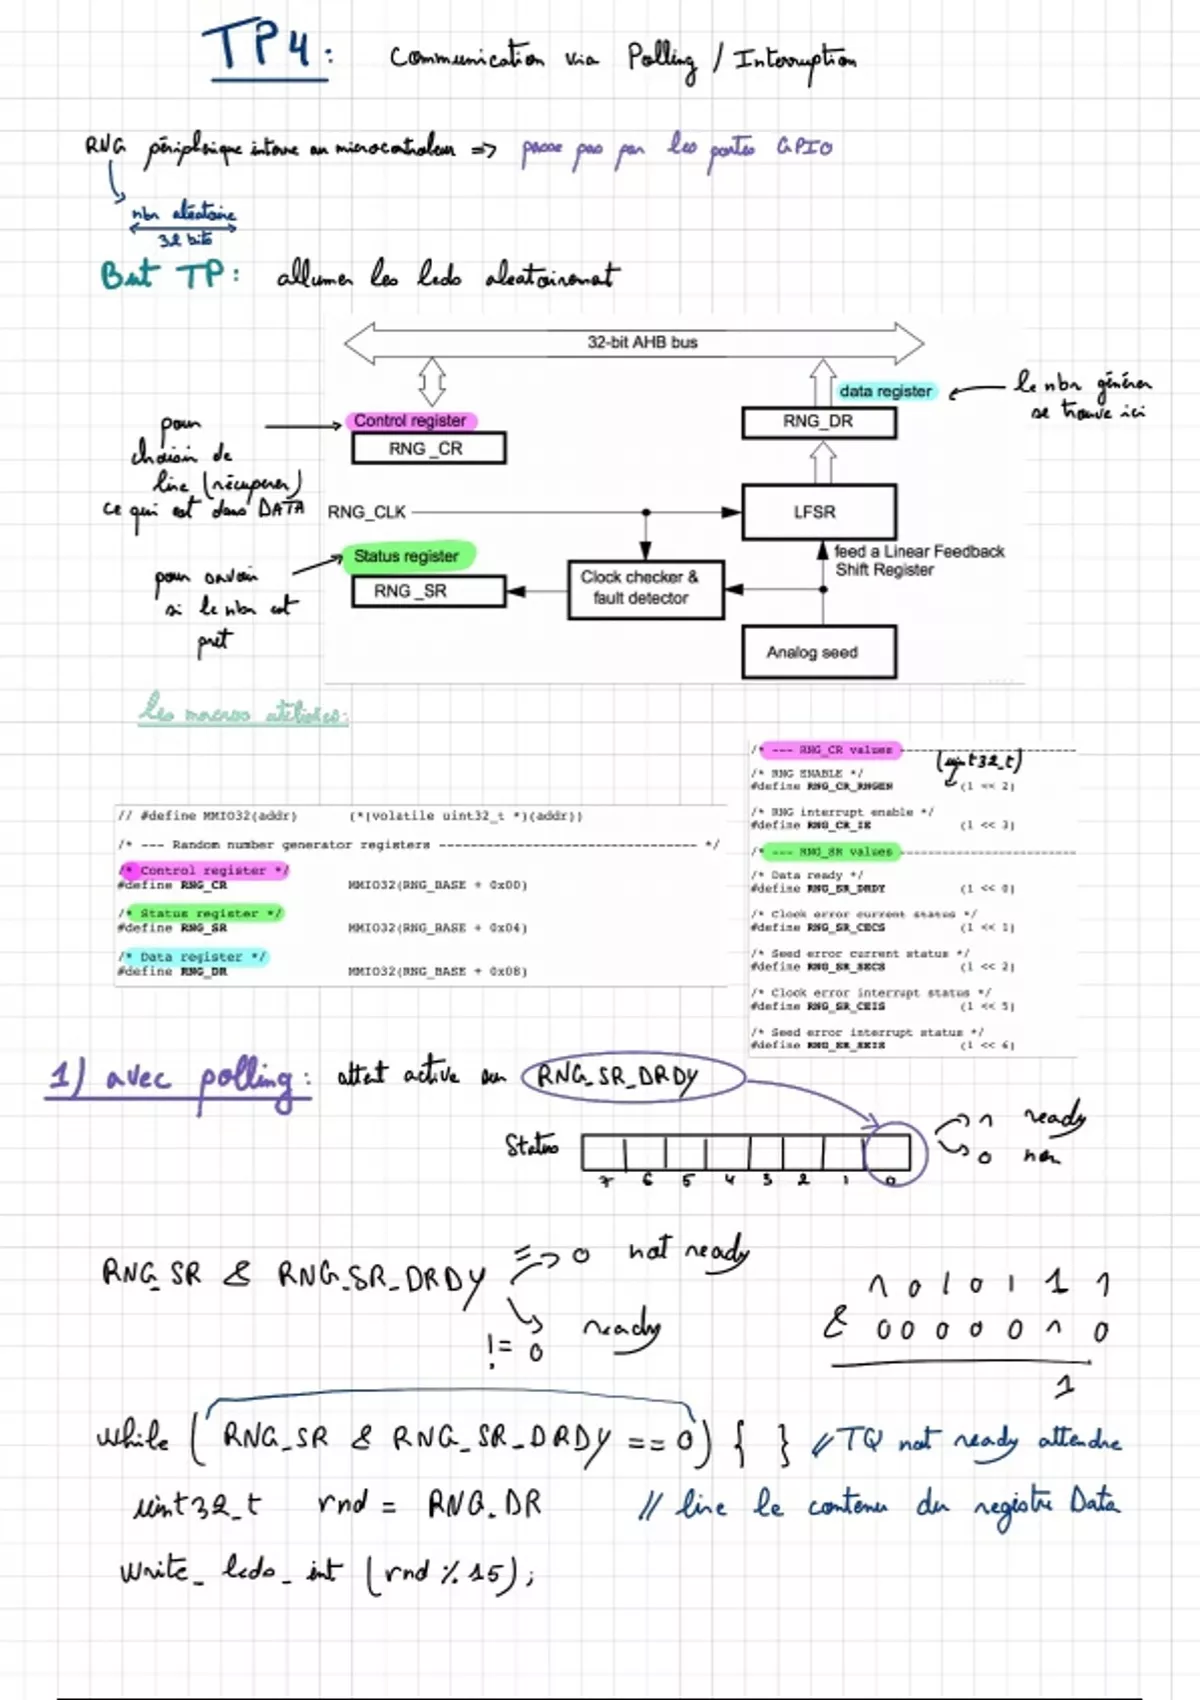 TP4 : Communication via Polling / Interruption
RNG périphérique interne au microcontroleur => passe pas par les portes GPIO
nbr aléatoire
32 bits
But TP : allumer les leds aleatoirement
32-bit AHB bus
data register
le nbr générer
se trouve ici
Control register
RNG_CR
RNG_DR
pour
choisir de
lire (récuperer)
ce qui est dans DATA
RNG_CLK
LFSR
Status register
RNG_SR
feed a Linear Feedback
Shift Register
Clock checker &
fault detector
pour savoir
si le nbr est
prêt
Analog seed
les macros utilisées :
// #define MMIO32(addr) (*(volatile uint32_t *)(addr))
/* --- Random number generator registers ---------------------------------- */
/* Control register */
#define RNG_CR MMIO32(RNG_BASE + 0x00)
/* Status register */
#define RNG_SR MMIO32(RNG_BASE + 0x04)
/* Data register */
#define RNG_DR MMIO32(RNG_BASE + 0x08)
/* --- RNG_CR values -----------------------
(uint32_t)
/* RNG ENABLE */
#define RNG_CR_RNGEN (1 << 2)
/* RNG interrupt enable */
#define RNG_CR_IE (1 << 3)
/* --- RNG_SR values -----------------------
/* Data ready */
#define RNG_SR_DRDY (1 << 0)
/* Clock error current status */
#define RNG_SR_CECS (1 << 1)
/* Seed error current status */
#define RNG_SR_SECS (1 << 2)
/* Clock error interrupt status */
#define RNG_SR_CEIS (1 << 5)
/* Seed error interrupt status */
#define RNG_SR_SEIS (1 << 6)
1) avec polling : attent active sur RNG_SR_DRDY
Status
7 6 5 4 3 2 1 0
1 ready
0 non
RNG_SR & RNG_SR_DRDY => 0 not ready
!= 0 ready
1 0 1 0 1 1 1
& 0 0 0 0 0 1 0
1
while ( RNG_SR & RNG_SR_DRDY == 0) { } // TQ not ready attendre
uint32_t rnd = RNG_DR // lire le contenu du registre Data
write_leds_int (rnd % 15);